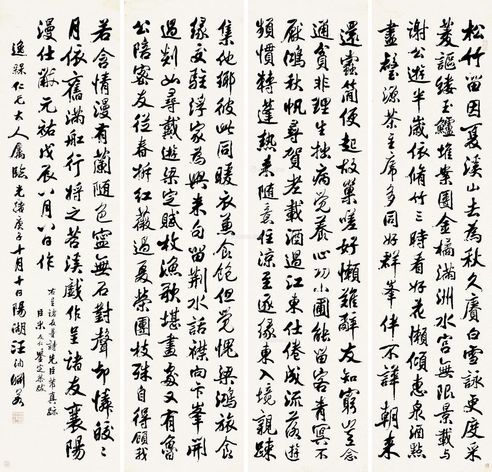 松竹留因夏溪山去為秋久賡白雪詠更度采
菱謳縷玉鱸堆案團金橘滿洲水宮無限景載與
謝公遊半歲依脩竹三時看好花懶傾惠泉酒點
盡壑源茶主席多同好群峯伴不譁朝来
還蠹簡便起故巢嗟好懶難辭友知窮豈念
通貧非理生拙病覺養心功小圃能留客青冥不
厭鴻秋帆尋賀老載酒過江東仕倦成流落游
頻慣轉蓬熱来隨意住涼至逐緣東入境親踈
集他鄉彼此同暖衣兼食飽但覺愧梁鴻旅食
緣交駐浮家為興来句留荆水話襟向卞峯開
過剡如尋戴遊梁定賦枚漁歌堪畫處又有魯
公陪密友從春拆紅薇過夏榮團枝殊自得顧我
若含情漫有蘭随色寧無石對聲却憐皎々
月依舊滿舩行將之苕溪戲作呈諸友襄陽
漫仕黻元祐戊辰八月八日作
仁兄大人屬臨光緒庚子十月十日陽湖汪洵